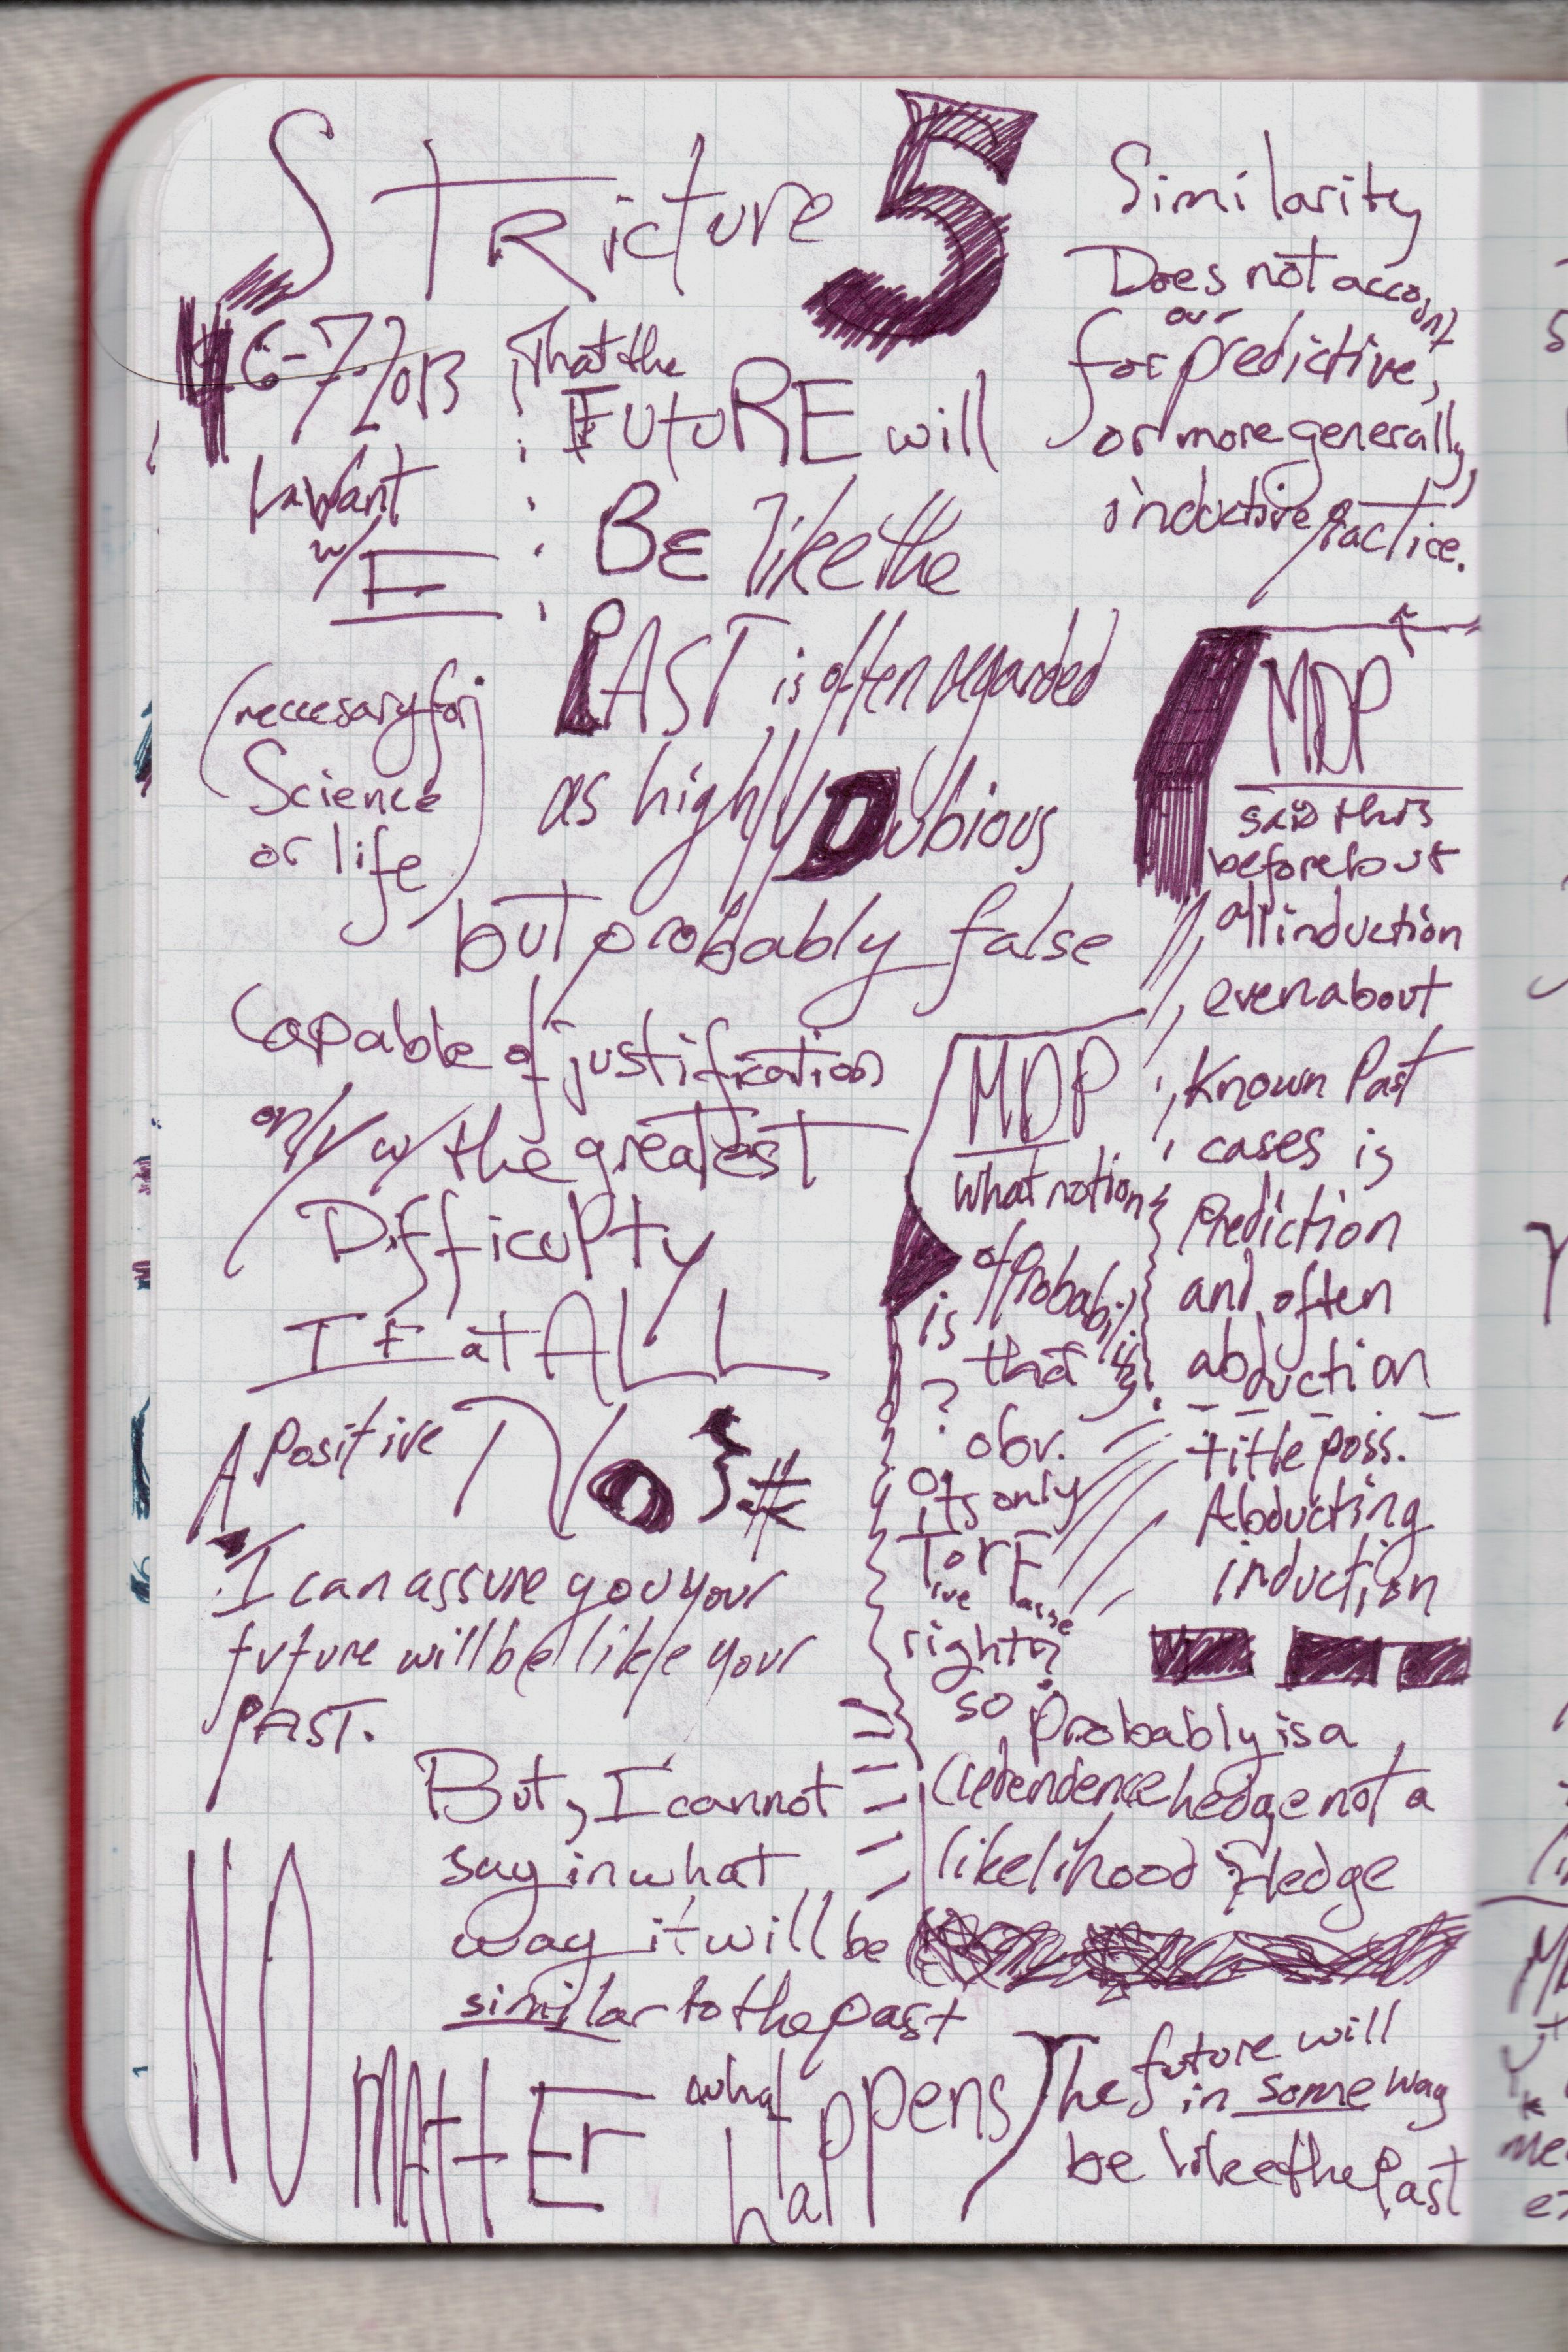 Stricture 5
Similarity
Does not account
for our predictive,
or more generally,
inductive practice.
6-7-2013
w/ E
That the
FUTURE will
BE like the
PAST is often regarded
as highly Dubious
but probably false
(neccesary for
Science
or life)
Capable of justification
only w/ the greatest
Difficulty
IF at ALL
A Positive No } #
I can assure you your
future will be like your
PAST.
But, I cannot
say in what
way it will be
similar to the past
NO
MATTEr what
happens
The future will
in some way
be like the Past
MDP
said this
before but
all induction
even about
Known Past
cases is
Prediction
and often
abduction
title poss.
Abducting
induction
MDP
What notion
of Probability
is that
?
obv.
its only
T or F
ive alse
right?
so, Probably is a
credendence hedge not a
likelihood Hedge